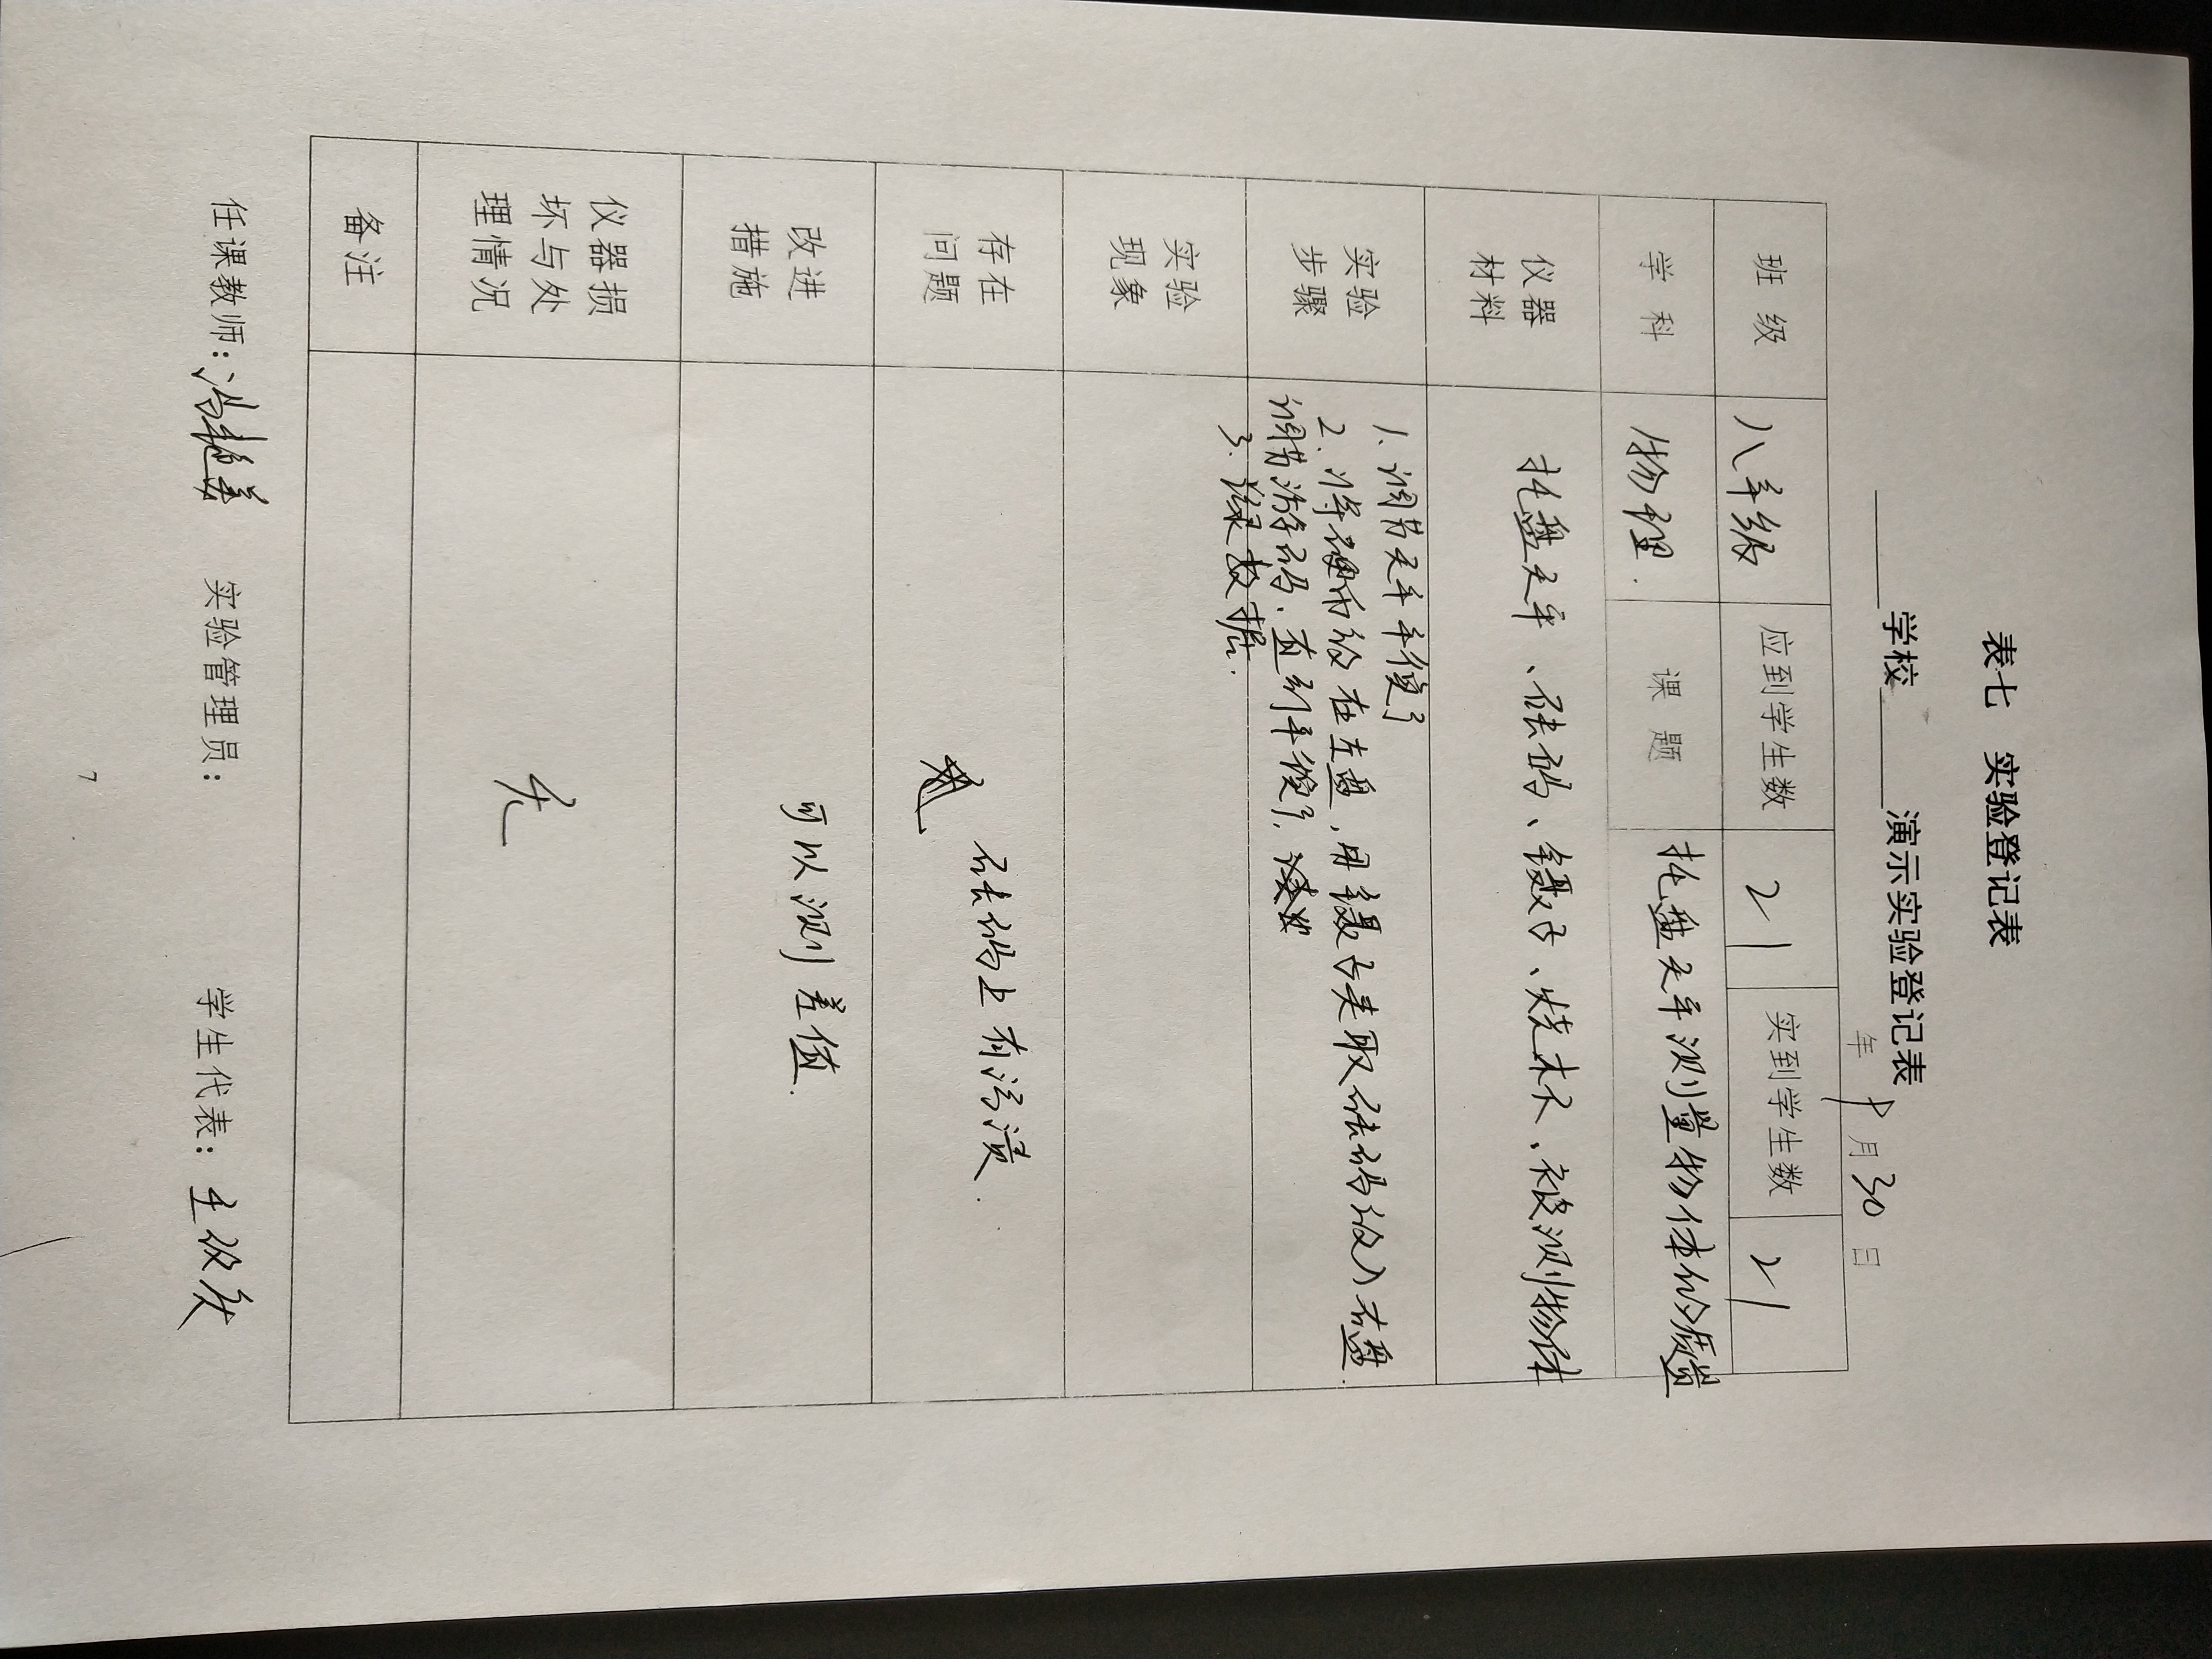 表七 实验登记表
学校 演示实验登记表
年 9月30日
班级 八年级 应到学生数 21 实到学生数 21
学科 物理. 课题 托盘天平测量物体的质量
仪器材料 托盘天平、砝码、镊子、烧杯、被测物体
实验步骤
1. 调节天平平衡
2. 将硬币放在左盘,用镊子夹取砝码放入右盘.
调节游码.直到平衡.
3. 数据.
实验现象
存在问题 砝码上有污渍.
改进措施 可以测差值.
仪器损坏与处理情况 无
备注
任课教师: 实验管理员: 学生代表:
7